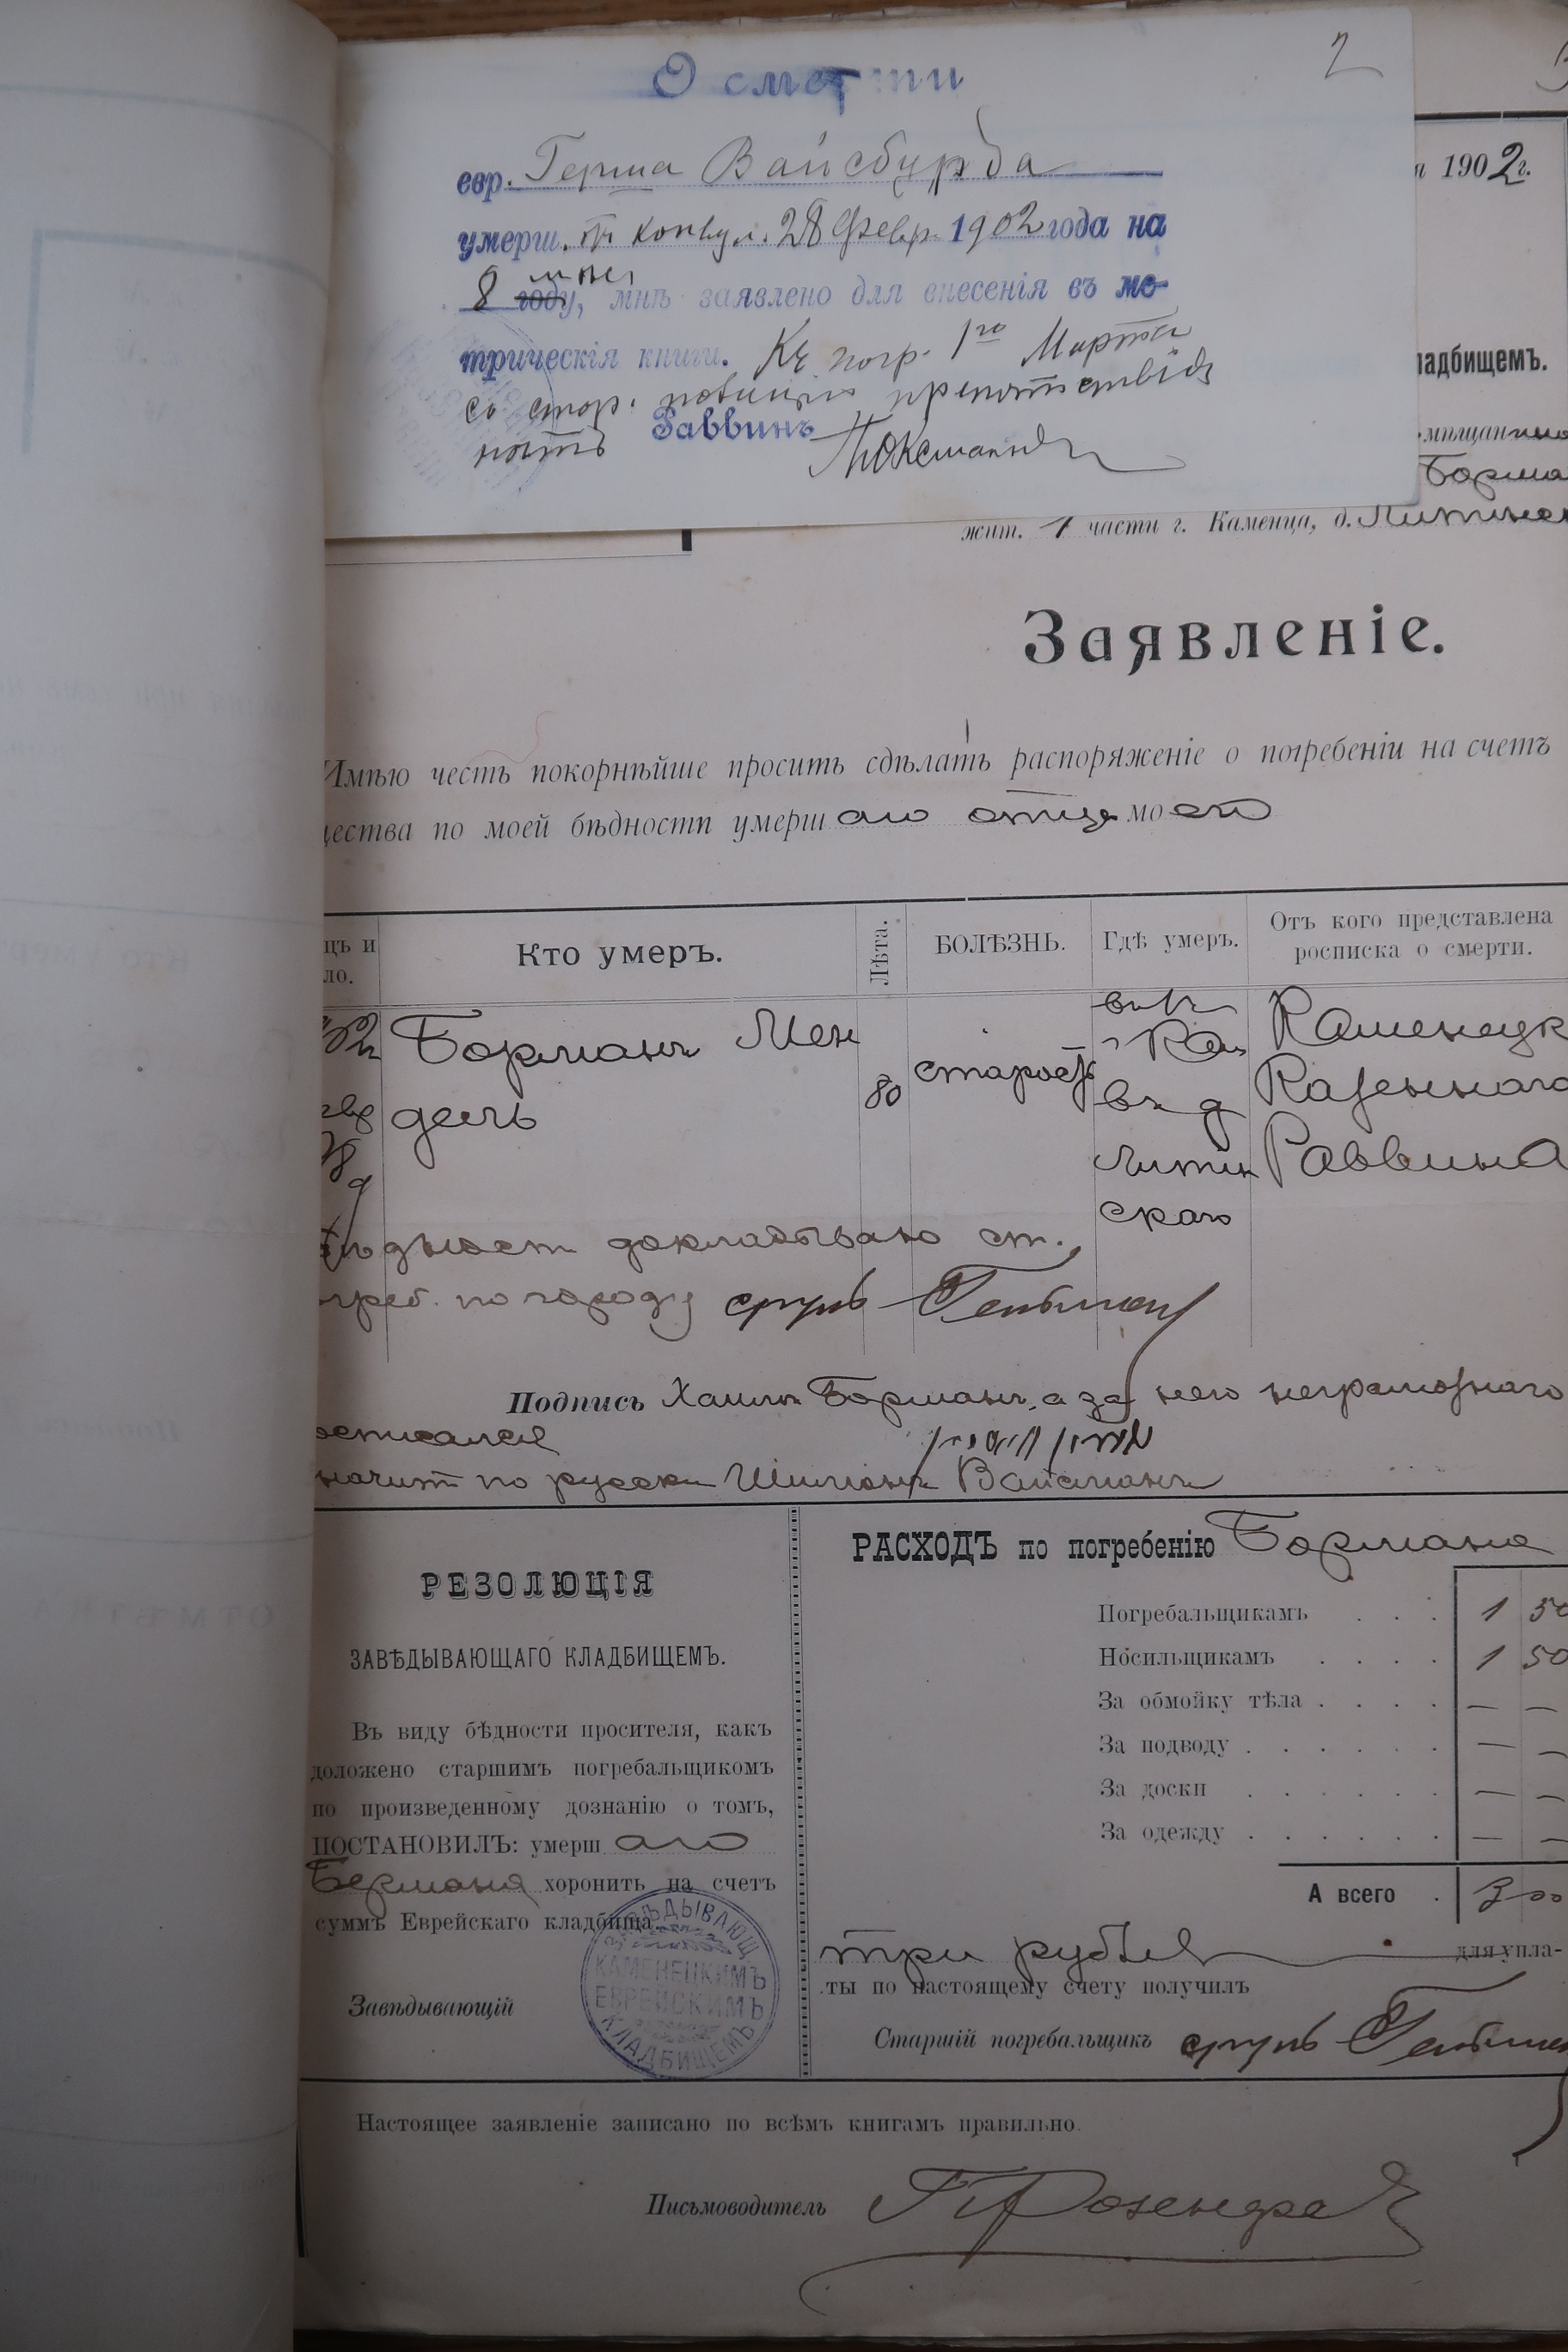 2
О смерти
евр. Герша Вайсбурда
умерш. от конвул. 28 Февр. 1902 года на
8 мес. году, мнѣ заявлено для внесенія въ ме-
трическія книги. Къ погр. 1го Марта
со стор. полиціи препятствій
нѣтъ Раввинъ
я 1902 г.
ладбищемъ.
мѣщанина
Борма
жит. 1 части г. Каменца, д. Литинск
Заявленіе.
Имѣю честь покорнѣйше просить сдѣлать распоряженіе о погребеніи на счетъ
щества по моей бѣдности умершаго отца моего
цъ и
ло.
Кто умеръ.
Лѣта.
БОЛѢЗНЬ.
Гдѣ умеръ.
Отъ кого представлена
росписка о смерти.
Борманъ Мен
дель
80
старость
въ г.
Кам
въ д
Литин
скаго
Каменецк
Казеннаго
Раввина
докладываю ст.
погреб. по городу Сруль Гельман
Подпись Хаимъ Борманъ, а за него неграмотнаго
осписался
значит по русски Шимонъ Вайсманъ
РЕЗОЛЮЦІЯ
ЗАВѢДЫВАЮЩАГО КЛАДБИЩЕМЪ.
Въ виду бѣдности просителя, какъ
доложено старшимъ погребальщикомъ
по произведенному дознанію о томъ,
ПОСТАНОВИЛЪ: умершаго
Бермана хоронить на счетъ
суммъ Еврейскаго кладбища.
Завѣдывающій
ЗАВѢДЫВАЮЩ
КАМЕНЕЦКИМЪ
ЕВРЕЙСКИМЪ
КЛАДБИЩЕМЪ
РАСХОДЪ по погребенію Бормана
Погребальщикамъ . . . 1 50
Носильщикамъ . . . . 1 50
За обмойку тѣла . . . . — —
За подводу . . . . . . — —
За доски . . . . . . — —
За одежду . . . . . . — —
А всего . 3 00
три рубля для упла-
ты по настоящему счету получилъ
Старшій погребальщикъ Сруль Гельман
Настоящее заявленіе записано по всѣмъ книгамъ правильно.
Письмоводитель